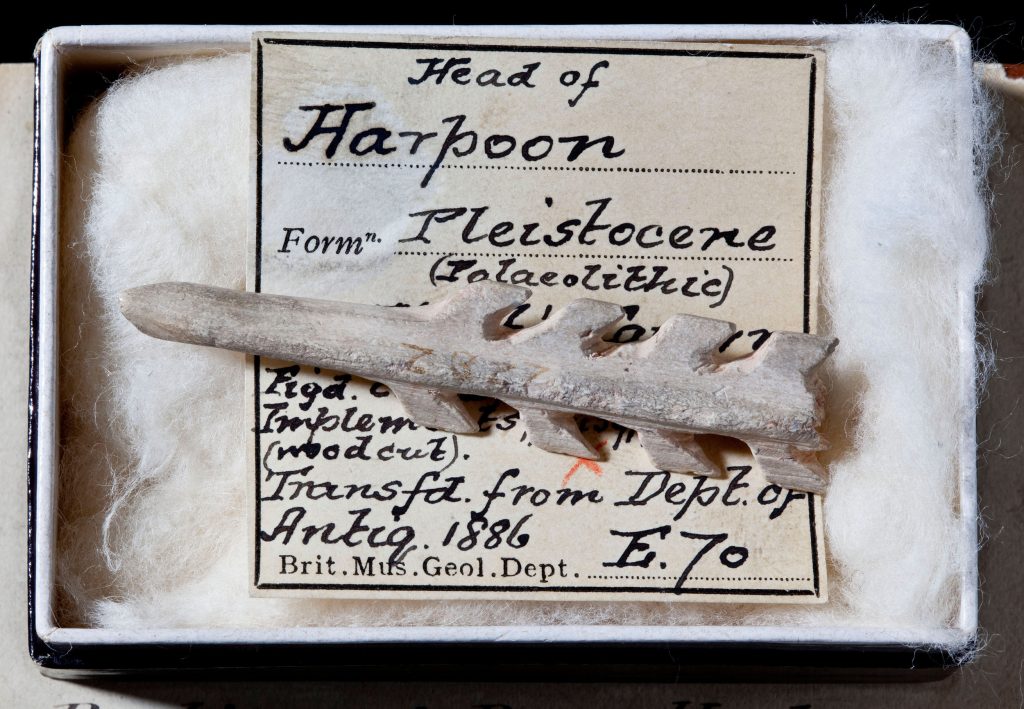 Head of
Harpoon
Formn. Pleistocene
(Palaeolithic)
Figd.
Implem
(woodcut).
Transfd. from Dept. of
Antiq. 1886
Brit.Mus.Geol.Dept. E.70